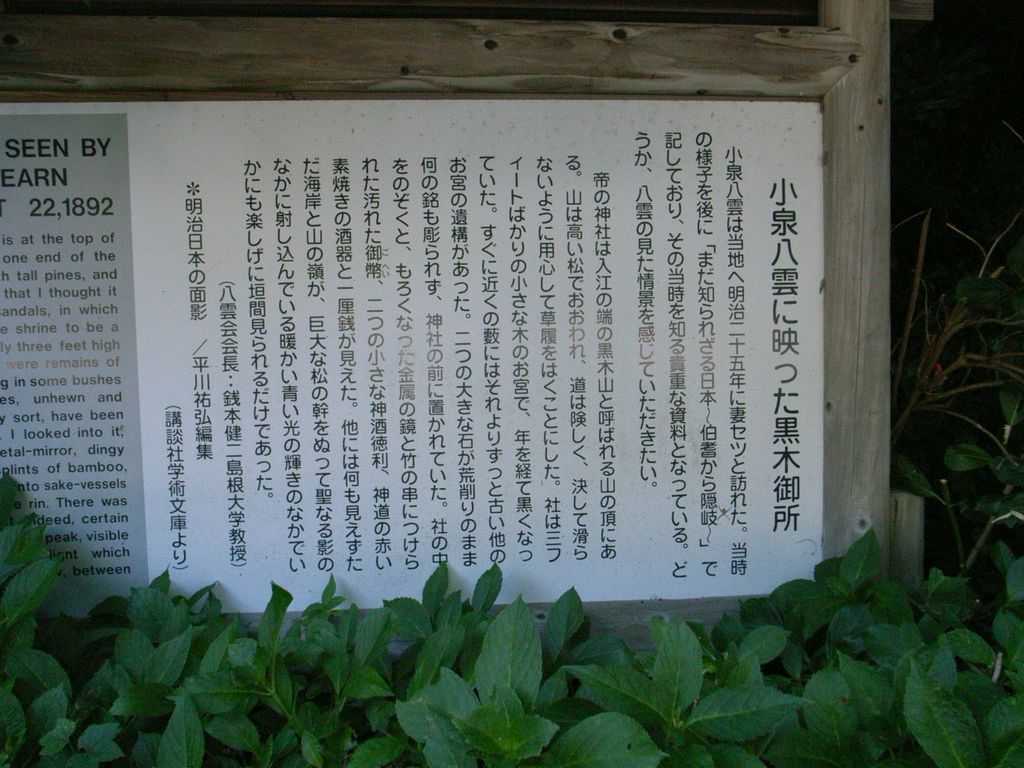 小泉八雲に映った黒木御所
小泉八雲は当地へ明治二十五年に妻セツと訪れた。当時
の様子を後に「まだ知られざる日本〜伯耆から隠岐〜」で
記しており、その当時を知る貴重な資料となっている。ど
うか、八雲の見た情景を感じていただきたい。
帝の神社は入江の端の黒木山と呼ばれる山の頂にあ
る。山は高い松でおおわれ、道は険しく、決して滑ら
ないように用心して草履をはくことにした。社は三フ
ィートばかりの小さな木のお宮で、年を経て黒くなっ
ていた。すぐに近くの藪にはそれよりずっと古い他の
お宮の遺構があった。二つの大きな石が荒削りのまま
何の銘も彫られず、神社の前に置かれていた。社の中
をのぞくと、もろくなった金属の鏡と竹の串につけら
れた汚れた御幣、二つの小さな神酒徳利、神道の赤い
素焼きの酒器と一厘銭が見えた。他には何も見えずた
だ海岸と山の嶺が、巨大な松の幹をぬって聖なる影の
なかに射し込んでいる暖かい青い光の輝きのなかでい
かにも楽しげに垣間見られるだけであった。
(八雲会会長:銭本健二島根大学教授)
＊明治日本の面影 ／平川祐弘編集
(講談社学術文庫より)
SEEN BY
EARN
T 22,1892
is at the top of
one end of the
h tall pines, and
that I thought it
andals, in which
e shrine to be a
ly three feet high
were remains of
g in some bushes
es, unhewn and
y sort, have been
. I looked into it,
etal-mirror, dingy
plints of bamboo,
nto sake-vessels
e rin. There was
indeed, certain
peak, visible
light which
, between